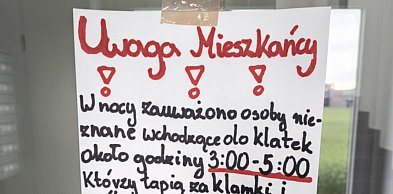 Uwaga Mieszkańcy
! ! !
W nocy zauważono osoby nie-
znane wchodzące do klatek
około godziny 3:00-5:00
Którzy łapią za klamki i